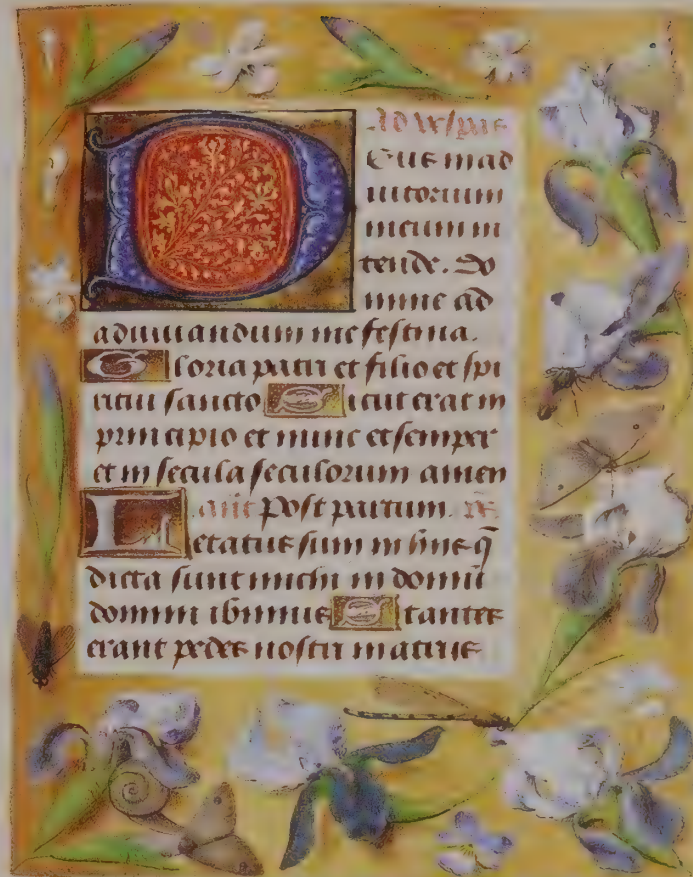 Ad vespas
Deus in ad
iutorium
meum in
tende. Do
mine ad
adiuuandum me festina.
Gloria patri et filio et spi
ritui sancto Sicut erat in
principio et nunc et semper
et in secula seculorum amen
añ Post partum. ps
Letatus sum in hiis q̄
dicta sunt michi in domū
domini ibimus Stantes
erant pedes nostri in atriis